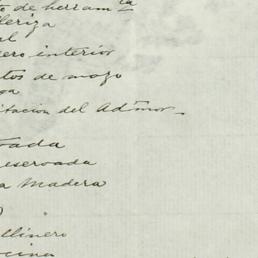 to de herramta
leriza
al
ero interior
tos de mozo
ga
itacion del Admor.
vada
eservada
a Madera
llinero
cina